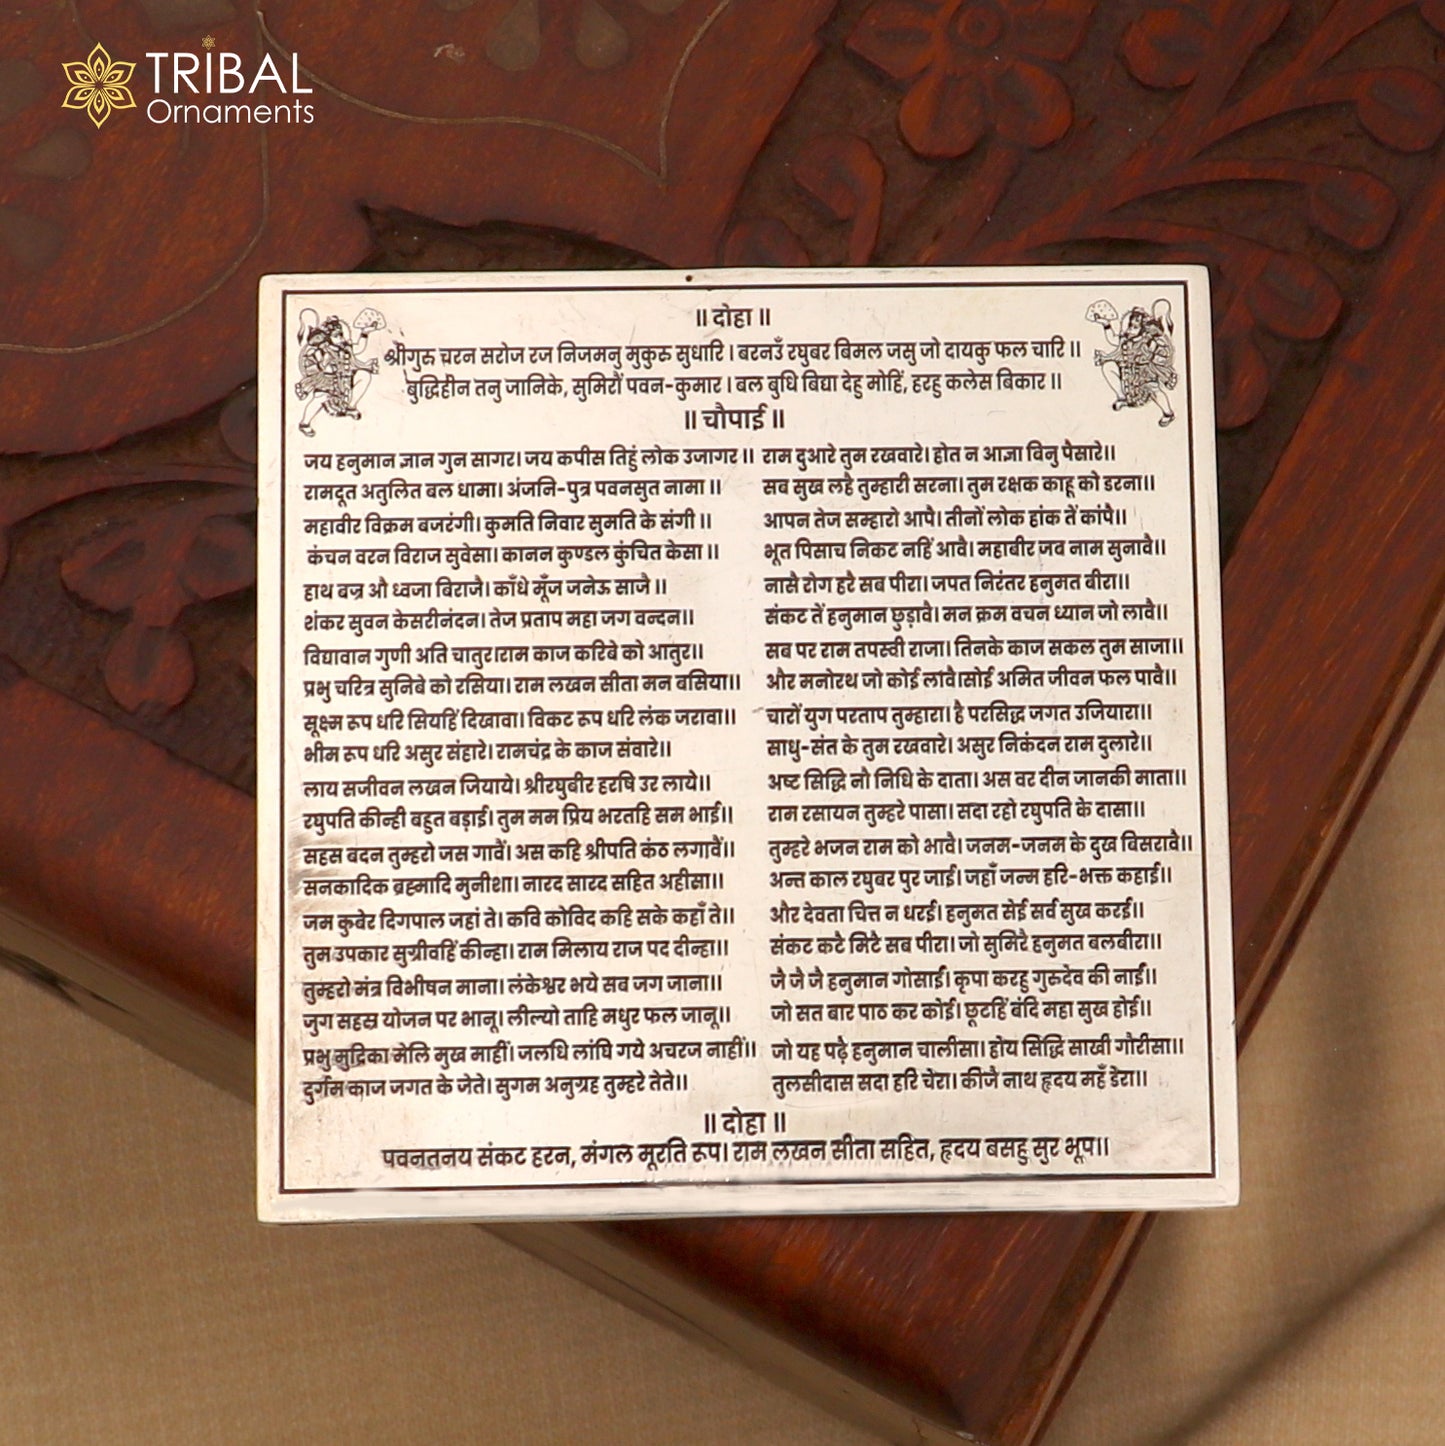 TRIBAL
Ornaments
॥ दोहा ॥
श्रीगुरु चरन सरोज रज निजमनु मुकुरु सुधारि । बरनउँ रघुबर बिमल जसु जो दायकु फल चारि ॥
बुद्धिहीन तनु जानिके, सुमिरौं पवन-कुमार । बल बुधि बिद्या देहु मोहिं, हरहु कलेस बिकार ॥
॥ चौपाई ॥
जय हनुमान ज्ञान गुन सागर। जय कपीस तिहुं लोक उजागर ॥
रामदूत अतुलित बल धामा। अंजनि-पुत्र पवनसुत नामा ॥
महावीर विक्रम बजरंगी। कुमति निवार सुमति के संगी ॥
कंचन वरन विराज सुवेसा। कानन कुण्डल कुंचित केसा ॥
हाथ बज्र औ ध्वजा बिराजै। काँधे मूँज जनेऊ साजै ॥
शंकर सुवन केसरीनंदन। तेज प्रताप महा जग वन्दन॥
विद्यावान गुणी अति चातुर।राम काज करिबे को आतुर॥
प्रभु चरित्र सुनिबे को रसिया। राम लखन सीता मन बसिया॥
सूक्ष्म रूप धरि सियहिं दिखावा। विकट रूप धरि लंक जरावा॥
भीम रूप धरि असुर संहारे। रामचंद्र के काज संवारे॥
लाय सजीवन लखन जियाये। श्रीरघुबीर हरषि उर लाये॥
रघुपति कीन्ही बहुत बड़ाई। तुम मम प्रिय भरतहि सम भाई॥
सहस बदन तुम्हरो जस गावैं। अस कहि श्रीपति कंठ लगावैं॥
सनकादिक ब्रह्मादि मुनीशा। नारद सारद सहित अहीसा॥
जम कुबेर दिगपाल जहां ते। कवि कोविद कहि सके कहाँ ते॥
तुम उपकार सुग्रीवहिं कीन्हा। राम मिलाय राज पद दीन्हा॥
तुम्हरो मंत्र विभीषन माना। लंकेश्वर भये सब जग जाना॥
जुग सहस्र योजन पर भानू। लील्यो ताहि मधुर फल जानू॥
प्रभु मुद्रिका मेलि मुख माहीं। जलधि लांघि गये अचरज नाहीं॥
दुर्गम काज जगत के जेते। सुगम अनुग्रह तुम्हरे तेते॥
राम दुआरे तुम रखवारे। होत न आज्ञा विनु पैसारे॥
सब सुख लहै तुम्हारी सरना। तुम रक्षक काहू को डरना॥
आपन तेज सम्हारो आपै। तीनों लोक हांक तें कांपै॥
भूत पिसाच निकट नहिं आवै। महाबीर जब नाम सुनावै॥
नासै रोग हरै सब पीरा। जपत निरंतर हनुमत बीरा॥
संकट तें हनुमान छुड़ावै। मन क्रम वचन ध्यान जो लावै॥
सब पर राम तपस्वी राजा। तिनके काज सकल तुम साजा॥
और मनोरथ जो कोई लावै।सोई अमित जीवन फल पावै॥
चारों युग परताप तुम्हारा। है परसिद्ध जगत उजियारा॥
साधु-संत के तुम रखवारे। असुर निकंदन राम दुलारे॥
अष्ट सिद्धि नौ निधि के दाता। अस वर दीन जानकी माता॥
राम रसायन तुम्हरे पासा। सदा रहो रघुपति के दासा॥
तुम्हरे भजन राम को भावै। जनम-जनम के दुख बिसरावै॥
अन्त काल रघुबर पुर जाई। जहाँ जन्म हरि-भक्त कहाई॥
और देवता चित्त न धरई। हनुमत सेई सर्व सुख करई॥
संकट कटै मिटै सब पीरा। जो सुमिरै हनुमत बलबीरा॥
जै जै जै हनुमान गोसाईं। कृपा करहु गुरुदेव की नाईं॥
जो सत बार पाठ कर कोई। छूटहिं बंदि महा सुख होई॥
जो यह पढ़ै हनुमान चालीसा। होय सिद्धि साखी गौरीसा॥
तुलसीदास सदा हरि चेरा। कीजै नाथ हृदय महँ डेरा॥
॥ दोहा ॥
पवनतनय संकट हरन, मंगल मूरति रूप। राम लखन सीता सहित, हृदय बसहु सुर भूप॥